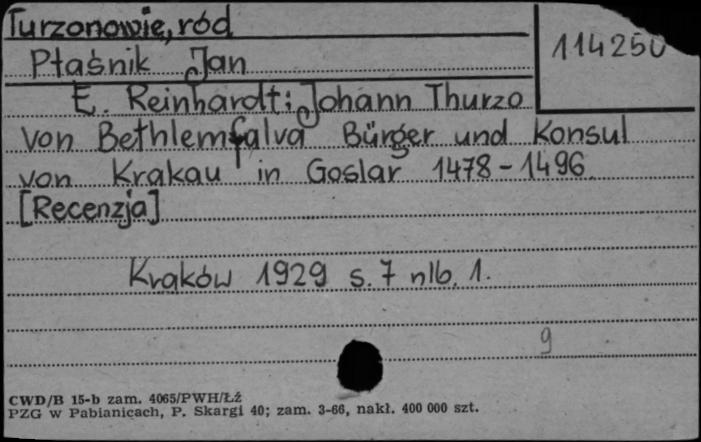 Turzonowie, ród
114250
Ptaśnik Jan
E. Reinhardt: Johann Thurzo
von Bethlemfalva Bürger und Konsul
von Krakau in Goslar 1478-1496.
[Recenzja]
Kraków 1929 s. 7 nlb. 1.
9
CWD/B 15-b zam. 4065/PWH/ŁŹ
PZG w Pabianicach, P. Skargi 40; zam. 3-66, nakł. 400 000 szt.